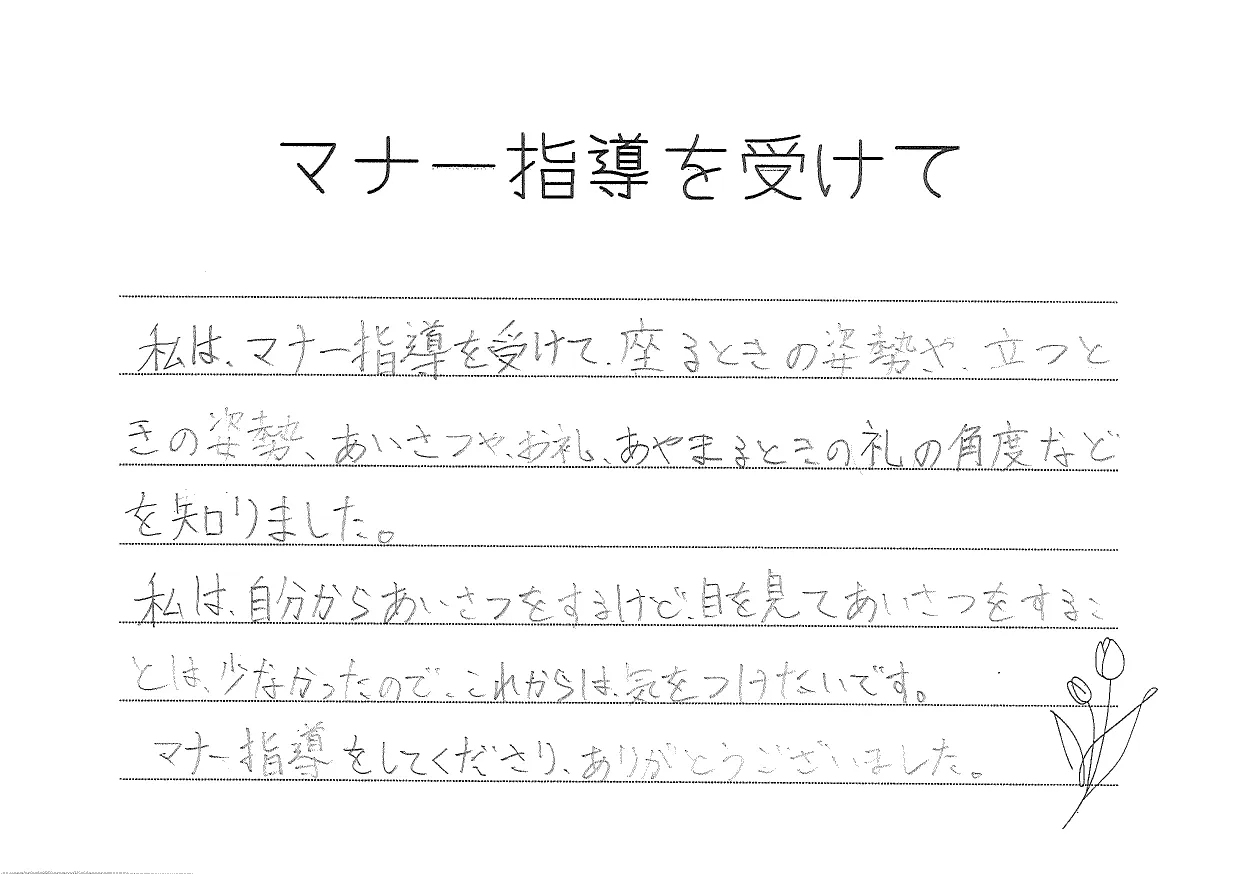 マナー指導を受けて
私は、マナー指導を受けて、座るときの姿勢や、立つと
きの姿勢、あいさつや、お礼、あやまるときの礼の角度など
を知りました。
私は、自分からあいさつをするけど、目を見てあいさつをするこ
とは、少なかったので、これからは、気をつけたいです。
マナー指導をしてくださり、ありがとうございました。